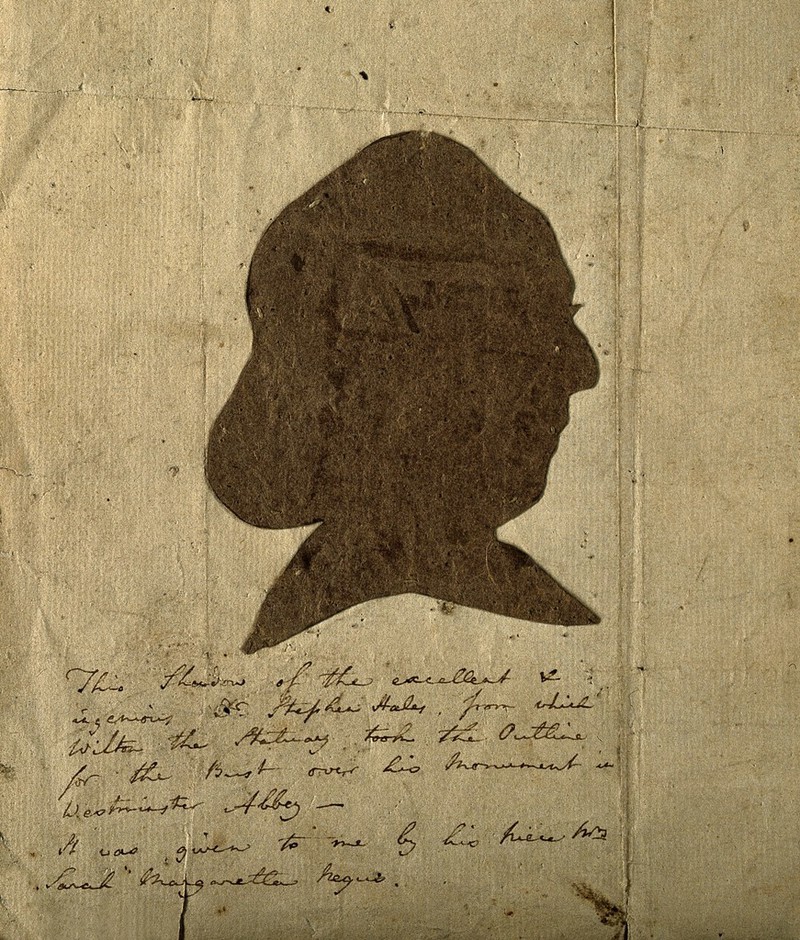 This Shadow of the excellent &
ingenious Dr. Stephen Hales, from which
Wilton the Statuary took the Outline
for the Bust over his Monument in
Westminster Abbey —
It was given to me by his niece Mrs
Sarah Margaretta